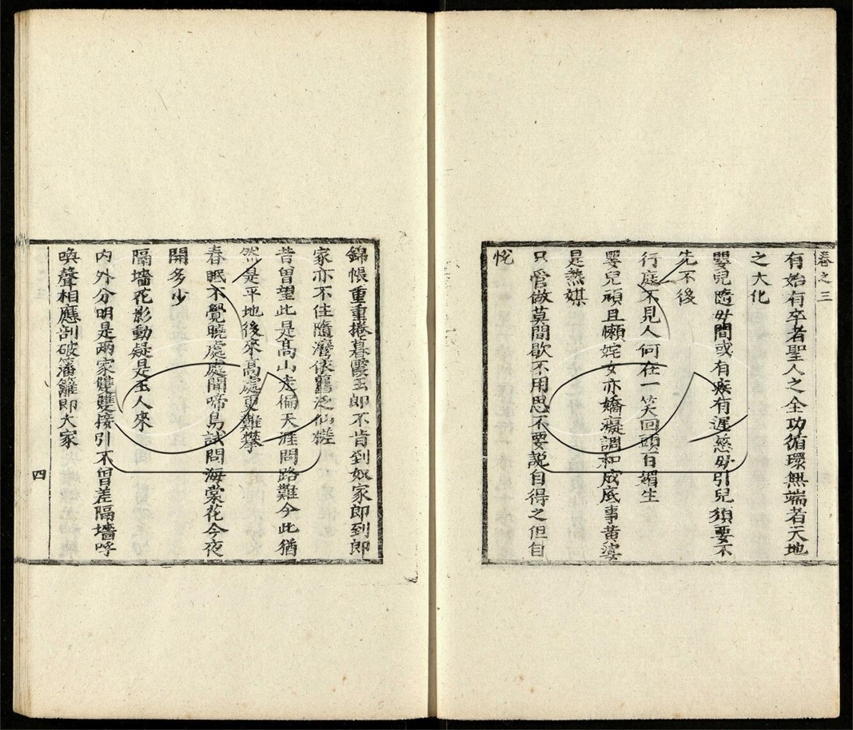 卷之三
有始有卒者聖人之全功循環無端者天地
之大化
嬰兒隨母間或有疾有遲慈母引兒須要不
先不後
行庭不見人何在一笑回頭百媚生
嬰兒頑且懶姹女亦嬌癡調和成底事黃婆
是無媒
只管做莫間歇不用思不要說自得之但自
悅
錦帳重重捲暮霞玉郎不肯到奴家郎到郎
家亦不住隨灣依舊泛仙槎
昔曾望此是高山走徧天涯問路難今此猶
然是平地後來高處更難攀
春眠不覺曉處處聞啼鳥試問海棠花今夜
開多少
隔墻花影動疑是玉人來
內外分明是兩家雙雙接引不曾差隔墻呼
喚聲相應剖破籓籬即大家
四